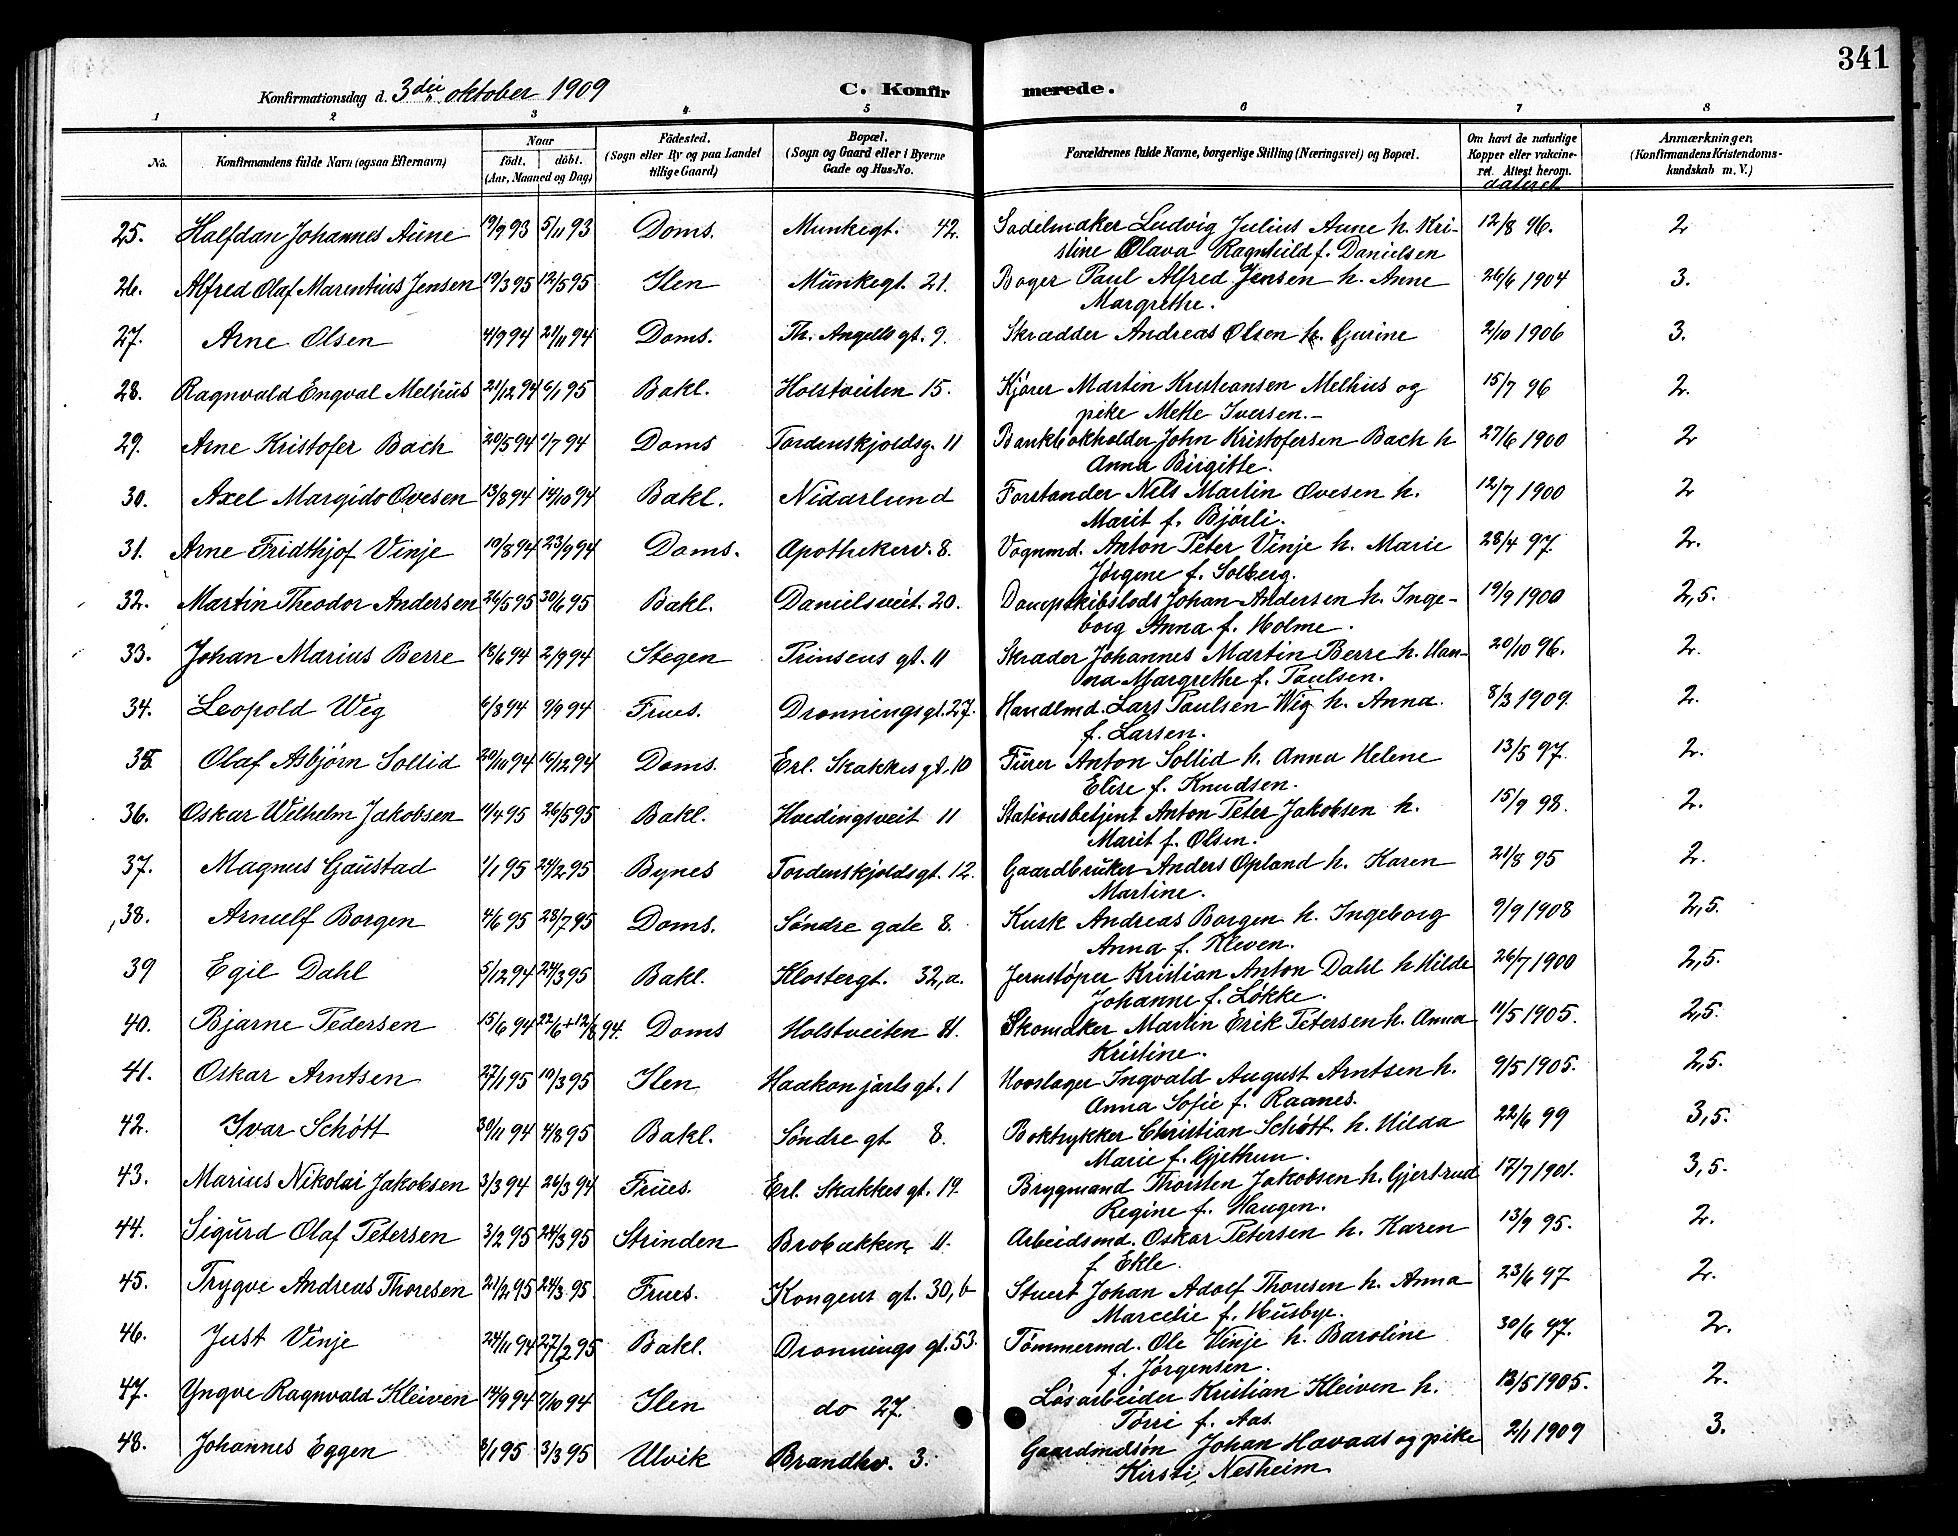 341
Konfirmationsdag d. 3die oktober 1909 C. Konfirmerede.
1 2 3 4 5 6 7 8
No. Konfirmandens fulde Navn (ogsaa Efternavn) Naar født. døbt. (Aar, Maaned og Dag) Fødested. (Sogn eller By og paa Landet tillige Gaard) Bopæl. (Sogn og Gaard eller i Byerne Gade og Hus-No. Forældrenes fulde Navne, borgerlige Stilling (Næringsvei) og Bopæl. Om havt de naturlige Kopper eller vakcineret. Attest herom. dateret Anmærkninger, (Konfirmandens Kristendomskundskab m. V.)
25. Halfdan Johannes Aune 19/9 93 5/11 93 Doms. Munkegt. 42. Sadelmaker Ludvig Julius Aune h. Kri- 12/8 96. 2
stine Olava Ragnhild f. Danielsen
26. Alfred Olaf Marentius Jensen 19/3 95 12/5 95 Ilen Munkegt. 21. Bager Paul Alfred Jensen h. Anne 26/6 1904 3.
Margrethe.
27. Arne Olsen 4/9 94 21/11 94 Doms. Th. Angells gt. 9. Skrædder Andreas Olsen h. Gurine 2/10 1906 3.
28. Ragnvald Engval Melhus 21/12 94 6/1 95 Bakl. Holstveiten 15. Kjører Martin Kristiansen Melhus og 15/7 96 2.
pike Mette Iversen.-
29. Arne Kristofer Bach 20/5 94 1/7 94 Doms Tordenskjoldsg. 11 Bankbokholder John Kristofersen Bach h 27/6 1900 2
Anna Birgitte.
30. Axel Margido Ovesen 13/8 94 14/10 94 Bakl. Nidarlund Forstander Nils Martin Ovesen h. 12/7 1900 2
Marit f. Bjørli.
31. Arne Fridthjof Vinje 10/8 94 23/9 94 Doms. Apothekerv. 8. Vognmd. Anton Peter Vinje h. Marie 28/4 97. 2.
Jørgene f. Solberg.
32. Martin Theodor Andersen 26/5 95 30/6 95 Bakl. Danielsveit. 20. Dampskibslods Johan Andersen h. Inge- 19/9 1900 2,5.
borg Anna f. Holme.
33. Johan Marius Berre 18/6 94 2/9 94 Stegen Prinsens gt. 11 Skræder Johannes Martin Berre h. Han- 20/10 96. 2.
na Margrethe f. Paulsen.
34. Leopold Wig 6/8 94 9/9 94 Frues. Dronningsgt. 27. Handlmd. Lars Paulsen Wig h. Anna 8/3 1909. 2.
f. Larsen.
35 Olaf Asbjørn Sollid 20/11 94 16/12 94 Doms. Erl. Skakkes gt. 10 Fürer Anton Sollid h. Anna Helene 13/5 97. 2.
Elise f. Knudsen.
36. Oskar Wilhelm Jakobsen 11/4 95 26/5 95 Bakl. Hoedingsveit 11 Stationsbetjent Anton Peter Jakobsen h. 15/9 98. 2.
Marit f. Olsen.
37. Magnus Gaustad 1/1 95 24/2 95 Bynes Tordenskjoldsgt. 12. Gaardbruker Anders Opland h. Karen 21/8 95 2.
Martine.
38. Arnulf Borgen 4/6 95 28/7 95 Doms. Søndre gate 8. Kusk Andreas Borgen h. Ingeborg 9/9 1908 2,5.
Anna f. Kleven.
39 Egil Dahl 5/12 94 24/3 95 Bakl. Klostergt. 32,a. Jernstøper Kristian Anton Dahl h Hilde 26/7 1900 2,5.
Johanne f. Løkke.
40. Bjarne Pedersen 15/6 94 22/6 + 12/8 94. Doms Holstveiten 11. Skomaker Martin Erik Petersen h. Anna 11/5 1905. 2,5.
Kristine.
41. Oskar Arntsen 27/1 95 10/3 95 Ilen Haakon jarls gt. 1 Hovslager Ingvald August Arntsen h. 9/5 1905. 2,5.
Anna Sofie f. Raanes.
42. Ivar Schøtt 30/11 94 4/8 95 Bakl. Søndre gt 8. Boktrykker Christian Schøtt h. Hilda 22/6 99 3,5.
Marie f. Gjethun.
43. Marius Nikolai Jakobsen 3/3 94 26/3 94 Frues. Erl. Skakkes gt. 19. Brygmand Thorsten Jakobsen h. Gjertrud 17/7 1901. 3,5.
Regine f. Haugen.
44. Sigurd Olaf Petersen 3/2 95 24/3 95 Strinden Brobakken 11. Arbeidsmd. Oskar Petersen h. Karen 13/9 95. 2.
f. Ekle.
45. Trygve Andreas Thoresen 21/2 95 24/3 95 Frues. Kongens gt. 30,b Stuert Johan Adolf Thoresen h. Anna 23/6 97 2.
Marcelie f. Husbye.
46. Just Vinje 24/11 94 27/2 95 Bakl. Dronnings gt. 53. Tømmermd. Ole Vinje h. Baroline 30/6 97. 2.
f. Jørgensen.
47. Yngve Ragnvald Kleiven 14/9 94 7/10 94 Ilen do 27. Løsarbeider Kristian Kleiven h. 13/5 1905. 2.
Tørri f. Aas.
48. Johannes Eggen 3/1 95 3/3 95 Ulvik Brandhv. 3. Gaardmdsøn Johan Havaas og pike 2/1 1909 3.
Kirsti Nesheim